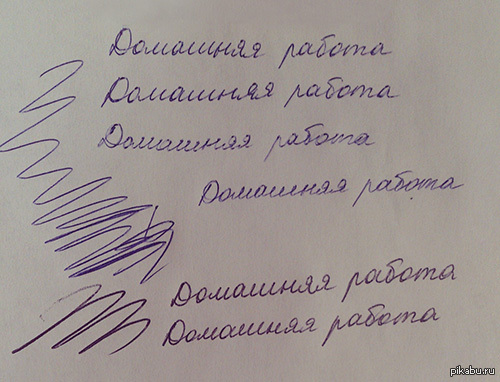 Домашняя работа
Домашняя работа
Домашняя работа
Домашняя работа
Домашняя работа
Домашняя работа
pikabu.ru